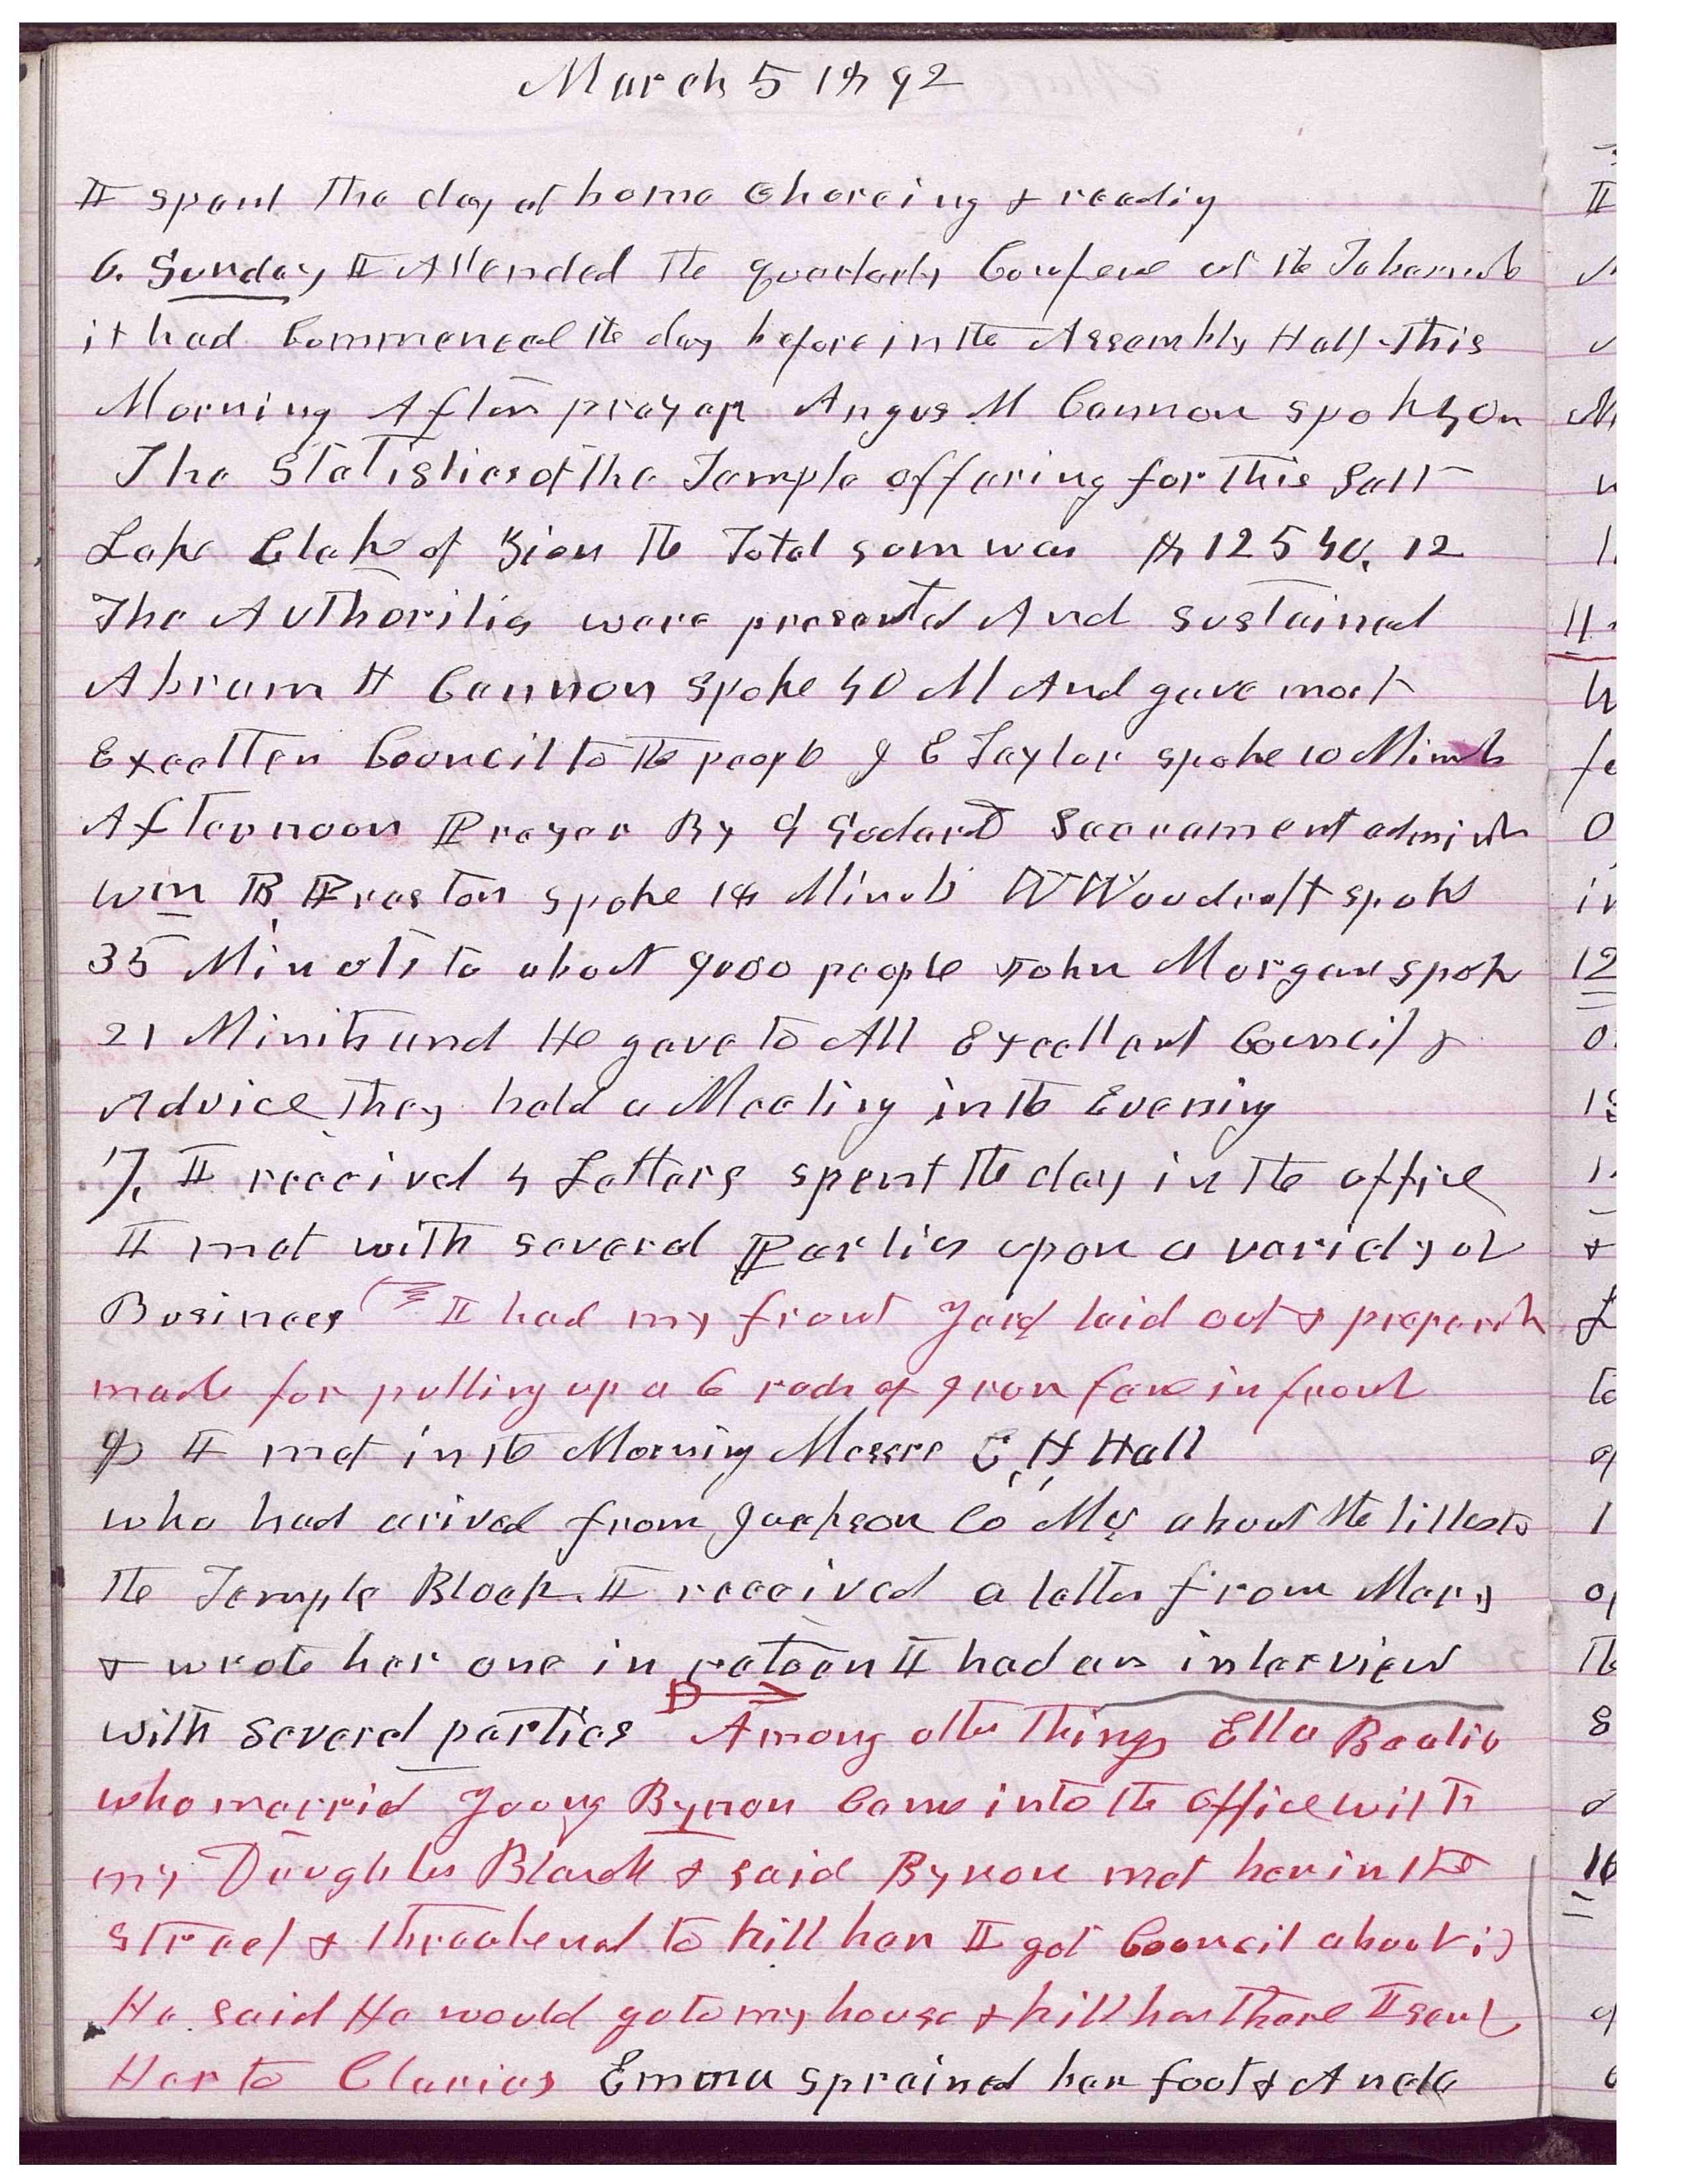 March 5 1892
I spent the day at home Choreing & readig
6. Sunday I Attended the quartarly Confere at the Taberncle
it had Commenced the day before in the Assembly Hall. This
Morning After prayer Angus M Cannon spoke on
The Statistics of the Temple offering for this Salt
Lake Stake of Zion The Total som was 12540.12
The Authorities were presented And sustained
Abram H Cannon spoke 40 M And gave most
Excellen Council to the people J E Taylor spoke 10 Minuts
Afternoon Prayer By G Godard Sacrament admistr
Wm B. Preston spoke 18 Minuts W Woodruff spoke
35 Minuts to about 9000 people John Morgan spok
21 Minits and He gave to All Excellent Council &
Advice They held a Meeting in the Evening
7. I received 4 Letters spent the day in the office
I met with several Parties upon a variety of
Business I had my front Yard laid out & preparth
made for putting up a 6 rods of Iron fence in front
8 I met in the Morning Messrs E, H, Hall
who had arived from Jackson Co Mo about the titles to
the Temple Block. I received a letter from Mary
& wrote her one in retorn I had an interview
with several parties Among other things Ella Beatie
who married Young Bynon Came into the office with
my Daughter Blanch & said Bynon met her in the
street & threatened to kill her I got Council about it
He said He would go to my house & kill her there I sent
Her to Claries Emma sprained her foot & Ancle